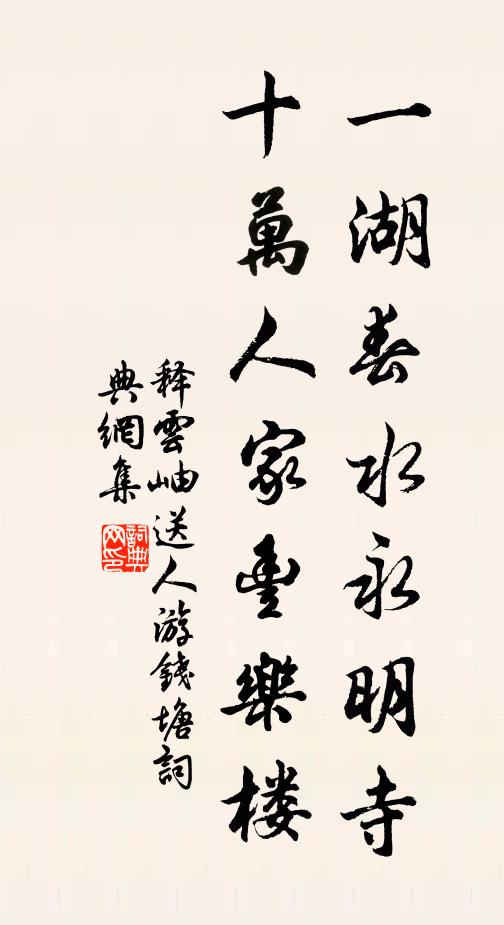 一湖春水永明寺
十萬人家豊樂楼
释雲岫送人游錢塘詞
典網集
詞典网印